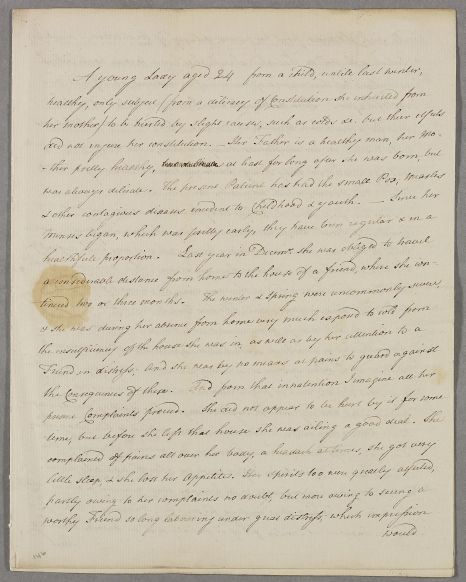 A young Lady aged 24 from a child, untill last winter,
healthy, only subject (from a delicacy of Constitution she inherited from
her mother) to be hurted by slight causes, such as colds &c. but their effects
did not injure her constitution. — Her Father is a healthy man, her Mo-
ther pretty healthy, at least for long after she was born, but
was always delicate. The present Patient has had the small Pox, Measles
& other contagious diseases incident to Childhood & youth. — Since her
menses began, which was pretty early, they have been regular & in a
healthfull proportion. — Last year in Decemr. she was obliged to travel
a considerable distance from home to the house of a friend, where she con-
tinued two or three months. — The winter & spring were uncommonly severe,
& she was during her absence from home very much exposed to cold from
the insufficiency of the house she was in, as well as by her attention to a
Friend in distress; And she was by no means at pains to guard against
the Consequences of these. And from that inattention I imagine all her
present Complaints proceed. — She did not appear to be hurt by it for some
time, but before she left that house she was ailing a good deal. She
complained of pains all over her body, a headach at times, she got very
little sleep, & she lost her appetite. Her spirits too were greatly affected,
partly owing to her complaints no doubt, but more owing to seeing a
worthy Friend so long labouring under great distress; which impression
would